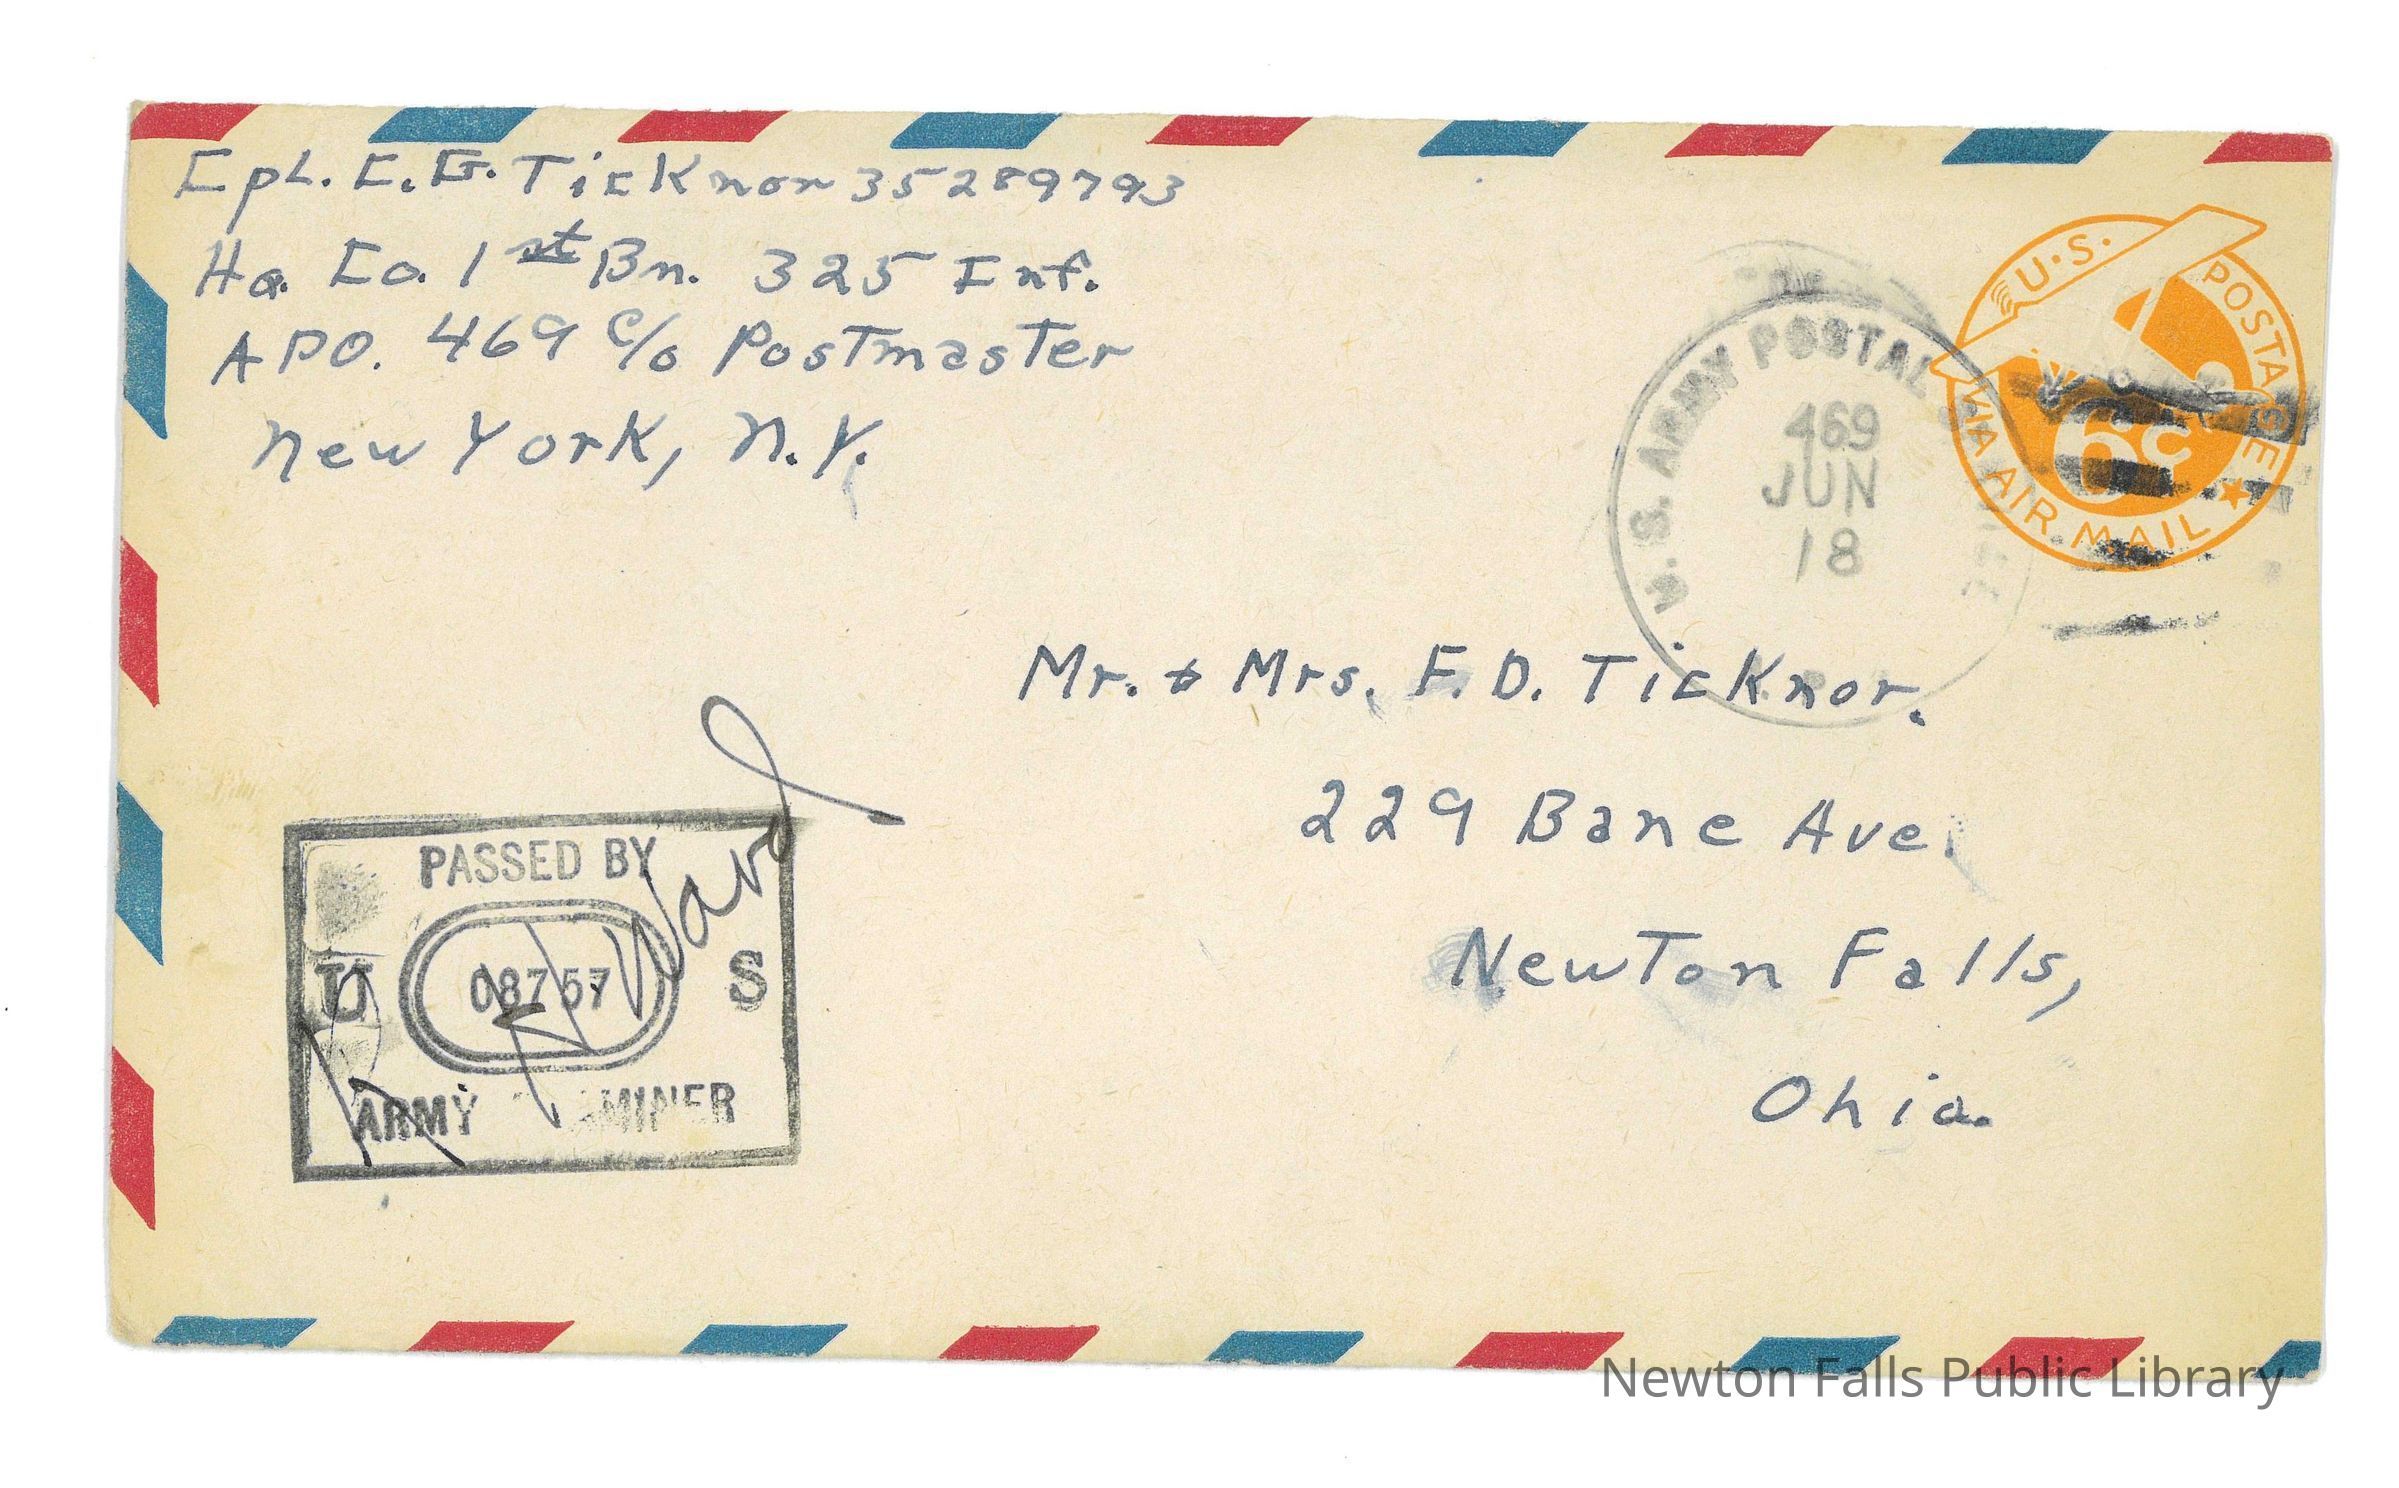 Cpl. C. G. Ticknor 35289793
Hq. Co. 1st Bn. 325 Inf.
APO. 469 c/o Postmaster
New York, N.Y.
U.S. POSTAGE
VIA AIR MAIL
6¢
U.S. ARMY POSTAL
469
JUN
18
Mr. & Mrs. F. D. Ticknor.
229 Bane Ave.
Newton Falls,
Ohio.
PASSED BY
U 08757 S
ARMY EXAMINER
Ward
Newton Falls Public Library